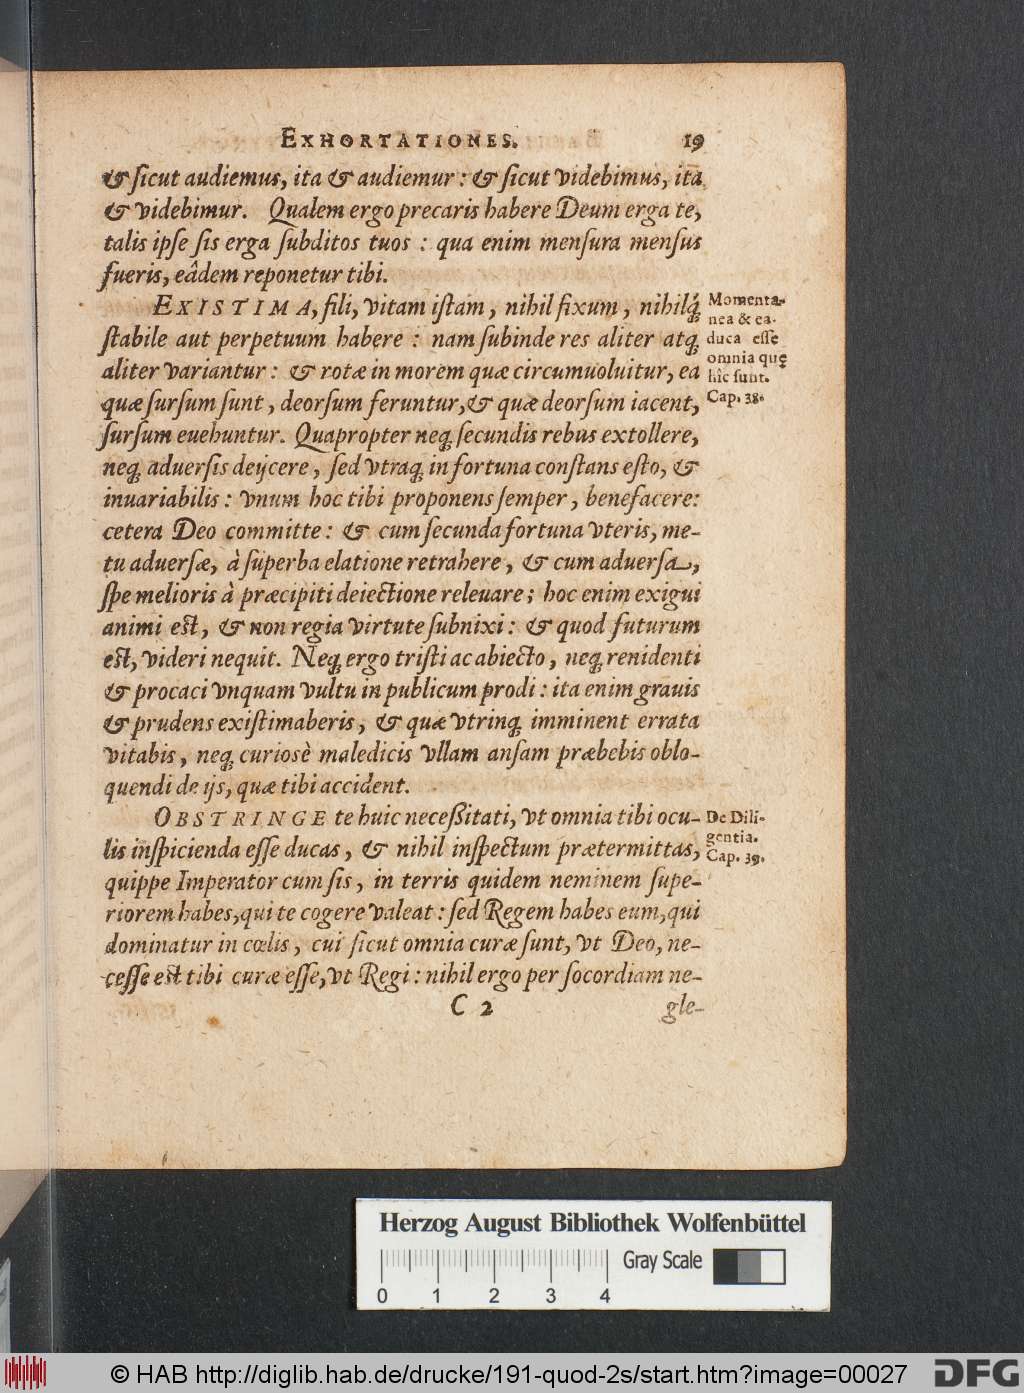 EXHORTATIONES. 19
& ſicut audiemus, ita & audiemur : & ſicut videbimus, ita
& videbimur. Qualem ergo precaris habere Deum erga te,
talis ipſe ſis erga ſubditos tuos : qua enim menſura menſus
fueris, eâdem reponetur tibi.
EXISTIMA, fili, vitam iſtam, nihil fixum, nihilq́;
ſtabile aut perpetuum habere : nam ſubinde res aliter atq;
aliter variantur : & rotæ in morem quæ circumuoluitur, ea
quæ ſurſum ſunt, deorſum feruntur, & quæ deorſum iacent,
ſurſum euehuntur. Quapropter neq; ſecundis rebus extollere,
neq; aduerſis deijcere, ſed vtraq; in fortuna conſtans eſto, &
inuariabilis : vnum hoc tibi proponens ſemper, benefacere:
cetera Deo committe : & cum ſecunda fortuna vteris, me-
tu aduerſæ, à ſuperba elatione retrahere, & cum aduerſa,
ſpe melioris à præcipiti deiectione releuare; hoc enim exigui
animi eſt, & non regia virtute ſubnixi : & quod futurum
eſt, videri nequit. Neq; ergo triſti ac abiecto, neq; renidenti
& procaci vnquam vultu in publicum prodi : ita enim grauis
& prudens exiſtimaberis, & quæ vtrinq; imminent errata
vitabis, neq; curiosè maledicis vllam anſam præbebis oblo-
quendi de ijs, quæ tibi accident.
OBSTRINGE te huic neceßitati, vt omnia tibi ocu-
lis inſpicienda eſſe ducas, & nihil inſpectum prætermittas,
quippe Imperator cum ſis, in terris quidem neminem ſupe-
riorem habes, qui te cogere valeat : ſed Regem habes eum, qui
dominatur in cœlis, cui ſicut omnia curæ ſunt, vt Deo, ne-
ceſſe eſt tibi curæ eſſe, vt Regi : nihil ergo per ſocordiam ne-
C 2 gle-
Momenta-
nea & ea-
duca eſſe
omnia quę
hîc ſunt.
Cap. 38.
De Dili-
gentia.
Cap. 39.
Herzog August Bibliothek Wolfenbüttel
Gray Scale
0 1 2 3 4
© HAB http://diglib.hab.de/drucke/191-quod-2s/start.htm?image=00027
DFG